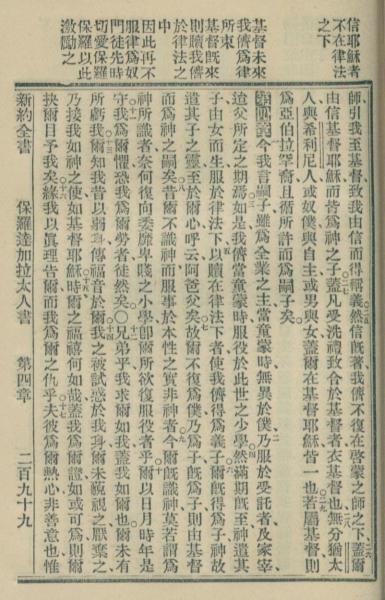 信耶穌者
不在律法
之下
基督未來
我儕爲律
所束
基督既來
則贖我儕
於律法之
中
因此再不
服律爲奴
門徒先時
切愛保羅
保羅以此
激勵之
師引我至基督致我由信而得稱義然信既著我儕不復在啓蒙之師之下蓋爾
由信基督耶穌而皆爲神之子蓋凡受洗禮致合於基督者衣基督也無分猶太
人與希利尼人或奴僕與自主或男與女蓋爾在基督耶穌皆一也若屬基督則
爲亞伯拉罕裔且循所許而爲嗣子矣
第四章今我言嗣子雖爲全業之主當童蒙時無異於僕乃服於受託者及家宰
迨父所定之期焉如是我儕當童蒙時服役於此世之少學然滿期既至神遣其
子由女而生服於律法下以贖在律法下者使我儕得爲義子爾既得爲子神故
遣其子之靈至於爾心呼云阿爸父矣故爾不復爲僕乃爲子既爲子則由基督
而爲神之嗣矣昔爾不識神而服事於本性之實非神者今爾既識神莫若謂爲
神所識者奈何復向委靡卑賤之小學卽爾所欲復服役者乎爾以日月時年是
守我爲爾懼恐我爲爾勞者徒然矣〇兄弟乎我求爾如我蓋我如爾也爾未有
所虧我爾知我昔以弱身傳福音於爾我之被試惑於我身爾未藐視之厭棄之
乃接我如神之使如基督耶穌時爾之福禧何如哉蓋我爲爾證如或可爲則爾
抉爾目予我矣緣我以眞理告爾而我爲爾之仇乎夫彼爲爾熱心非善意也惟
新約全書 保羅達加拉太人書 第四章 二百九十九